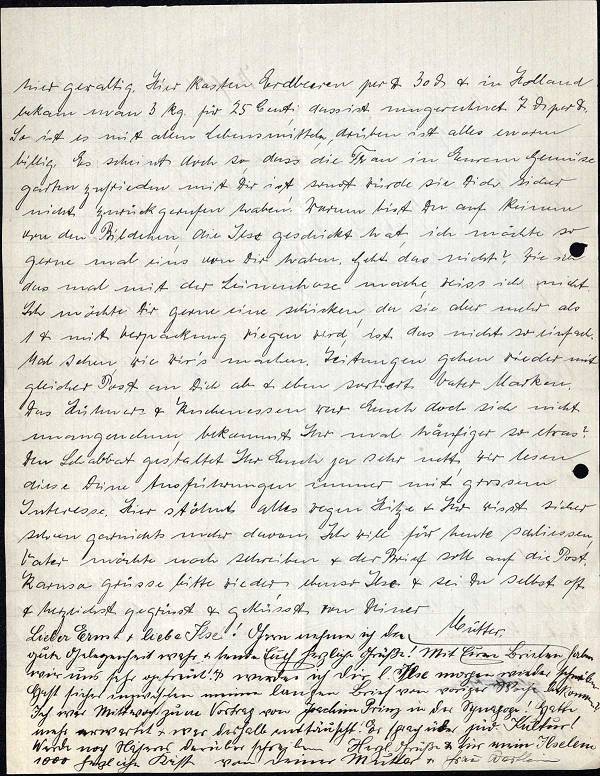 hier gewaltig. Hier kosten Erdbeeren per ℔ 30 ₰ & in Holland
bekam man 3 kg für 25 Cent; das ist umgerechnet 7 ₰ per ℔.
So ist es mit allen Lebensmitteln, drüben ist alles enorm
billig. Es scheint doch so, dass die Frau in Eurem Gemüse
garten zufrieden mit Dir ist, sonst würde sie Dich sicher
nicht zurückgerufen haben. Warum bist Du auf keinem
von den Bildchen, die Ilse geschickt hat, ich möchte so
gerne mal eins von Dir haben. Geht das nicht? Wie ich
das mal mit der Leinenhose mache weiss ich nicht.
Ich möchte Dir gerne eine schicken, da sie aber mehr als
1 ℔ mit Verpackung wiegen wird, ist das nicht so einfach.
Mal sehen, wie wir's machen. Zeitungen gehen wieder mit
gleicher Post an Dich ab & eben sortiert Vater Marken.
Das Hühner & Kuchenessen war Euch doch sich nicht
unangenehm, bekommt Ihr mal häufiger so etwas?
Den Schabbat gestaltet Ihr Euch ja sehr nett, wir lesen
diese Deine Ausführungen immer mit grossem
Interesse. Hier stöhnt alles wegen Hitze & Ihr wisst sicher
schon garnichts mehr davon. Ich will für heute schliessen,
Vater möchte noch schreiben & der Brief soll auf die Post.
grüsse bitte wieder, ebenso Ilse & sei Du selbst oft
& herzlichst gegrüsst & geküsst von Deiner
Mutter.
Lieber Erma & liebe Ilse! Gern nehme ich die
gute Gelegenheit wahr & sende Euch herzliche Grüße! Mit Euren Briefen haben
wir uns sehr gefreut & werde ich dir, l. Ilse morgen wieder schreiben.
Hast sicher inzwischen meinen langen Brief von voriger Woche bekommen?
Ich war Mittwoch zum Vortrag von Joachim Prinz in der Synagoge! Hatte
mehr erwartet & war deshalb enttäuscht. Er sprach über jüd. Kultur!
Werde noch Näheres darüber schreiben. Herzl. Grüße & für mein Ilselein
1000 herzliche Küsse von deiner Mutter &